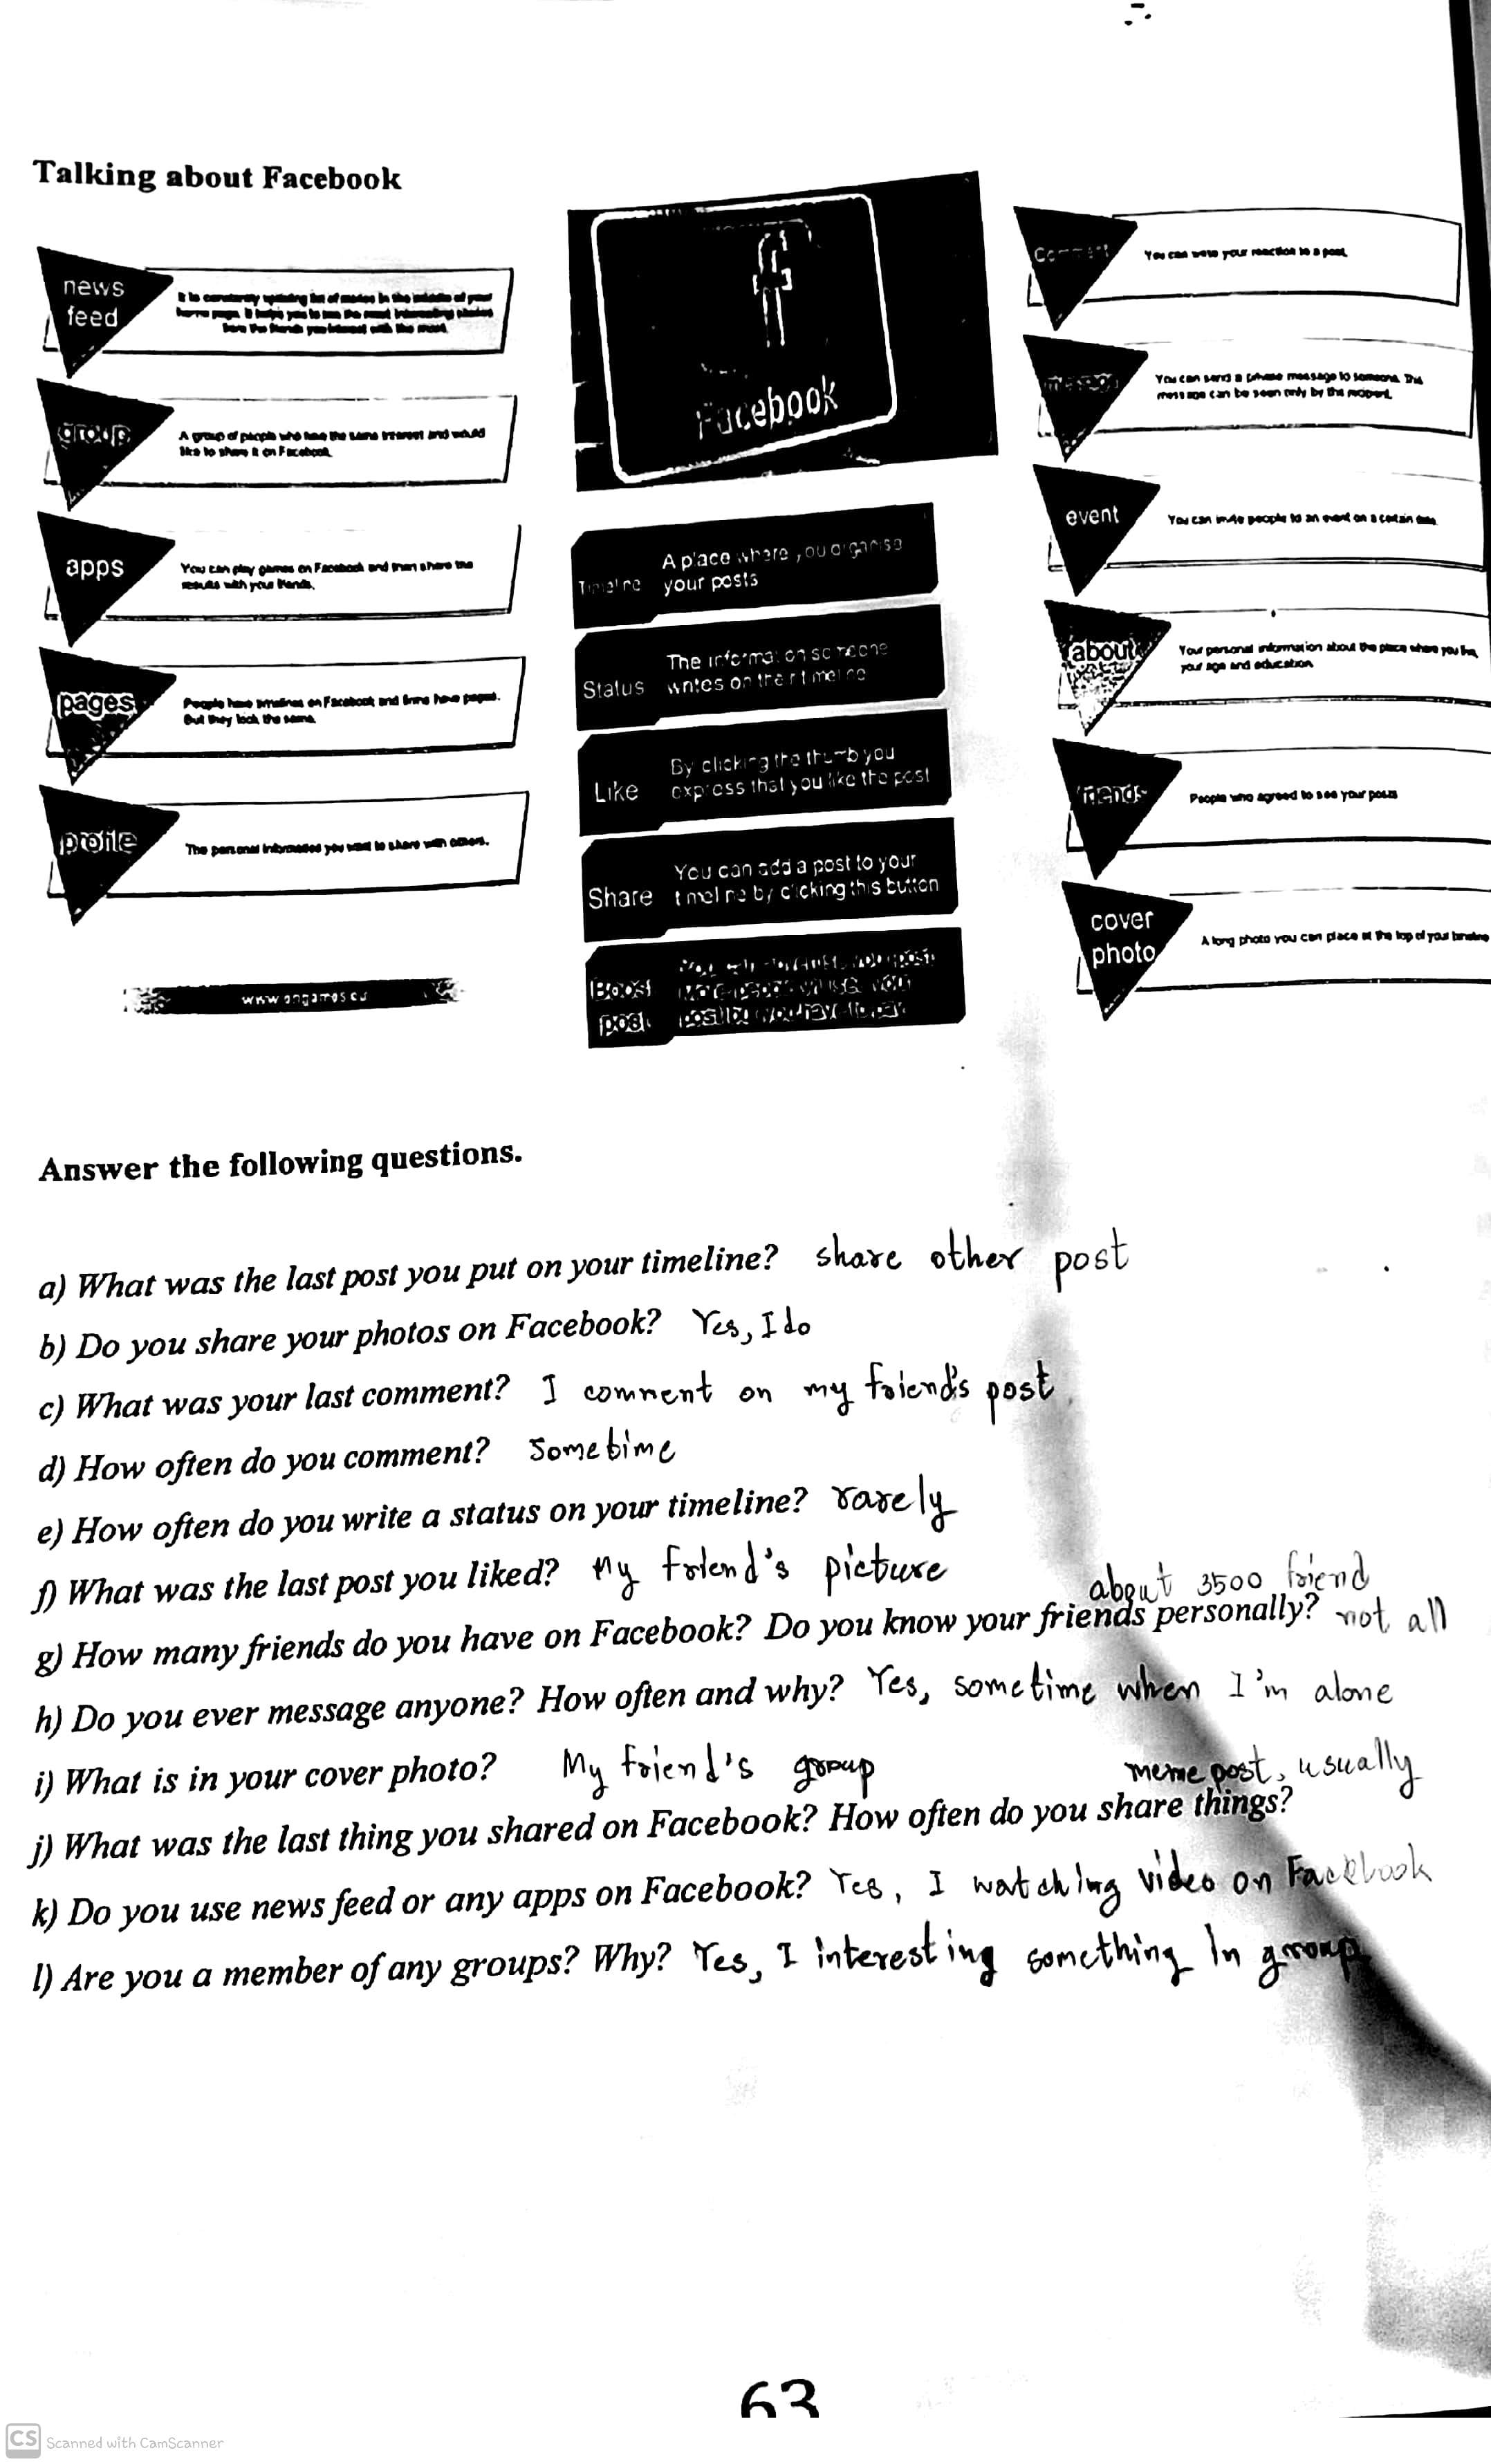 Talking about Facebook
news
feed
It is constantly updating list of stories in the middle of your
home page. It helps you to see the most interesting stories
from the friends you interact with the most.
group
A group of people who have the same interest and would
like to share it on Facebook.
apps
You can play games on Facebook and then share the
results with your friends.
pages
People have timelines on Facebook and firms have pages.
But they look the same.
profile
The personal information you want to share with others.
www.engames.eu
Facebook
Timeline
A place where you organise
your posts
Status
The information someone
writes on their timeline
Like
By clicking the thumb you
express that you like the post
Share
You can add a post to your
timeline by clicking this button
Boost
post
More people will see your
post but you have to pay
Comment
You can write your reaction to a post.
message
You can send a private message to someone. This
message can be seen only by the recipient.
event
You can invite people to an event on a certain date.
about
Your personal information about the place where you live,
your age and education.
friends
People who agreed to see your posts
cover
photo
A long photo you can place at the top of your timeline
Answer the following questions.
a) What was the last post you put on your timeline? share other post
b) Do you share your photos on Facebook? Yes, I do
c) What was your last comment? I comment on my friend's post
d) How often do you comment? Sometime
e) How often do you write a status on your timeline? rarely
f) What was the last post you liked? My friend's picture
about 3500 friend
g) How many friends do you have on Facebook? Do you know your friends personally? not all
h) Do you ever message anyone? How often and why? Yes, sometime when I'm alone
i) What is in your cover photo? My friend's group
meme post, usually
j) What was the last thing you shared on Facebook? How often do you share things?
k) Do you use news feed or any apps on Facebook? Yes, I watching video on Facebook
l) Are you a member of any groups? Why? Yes, I interesting something In group
63
CS Scanned with CamScanner